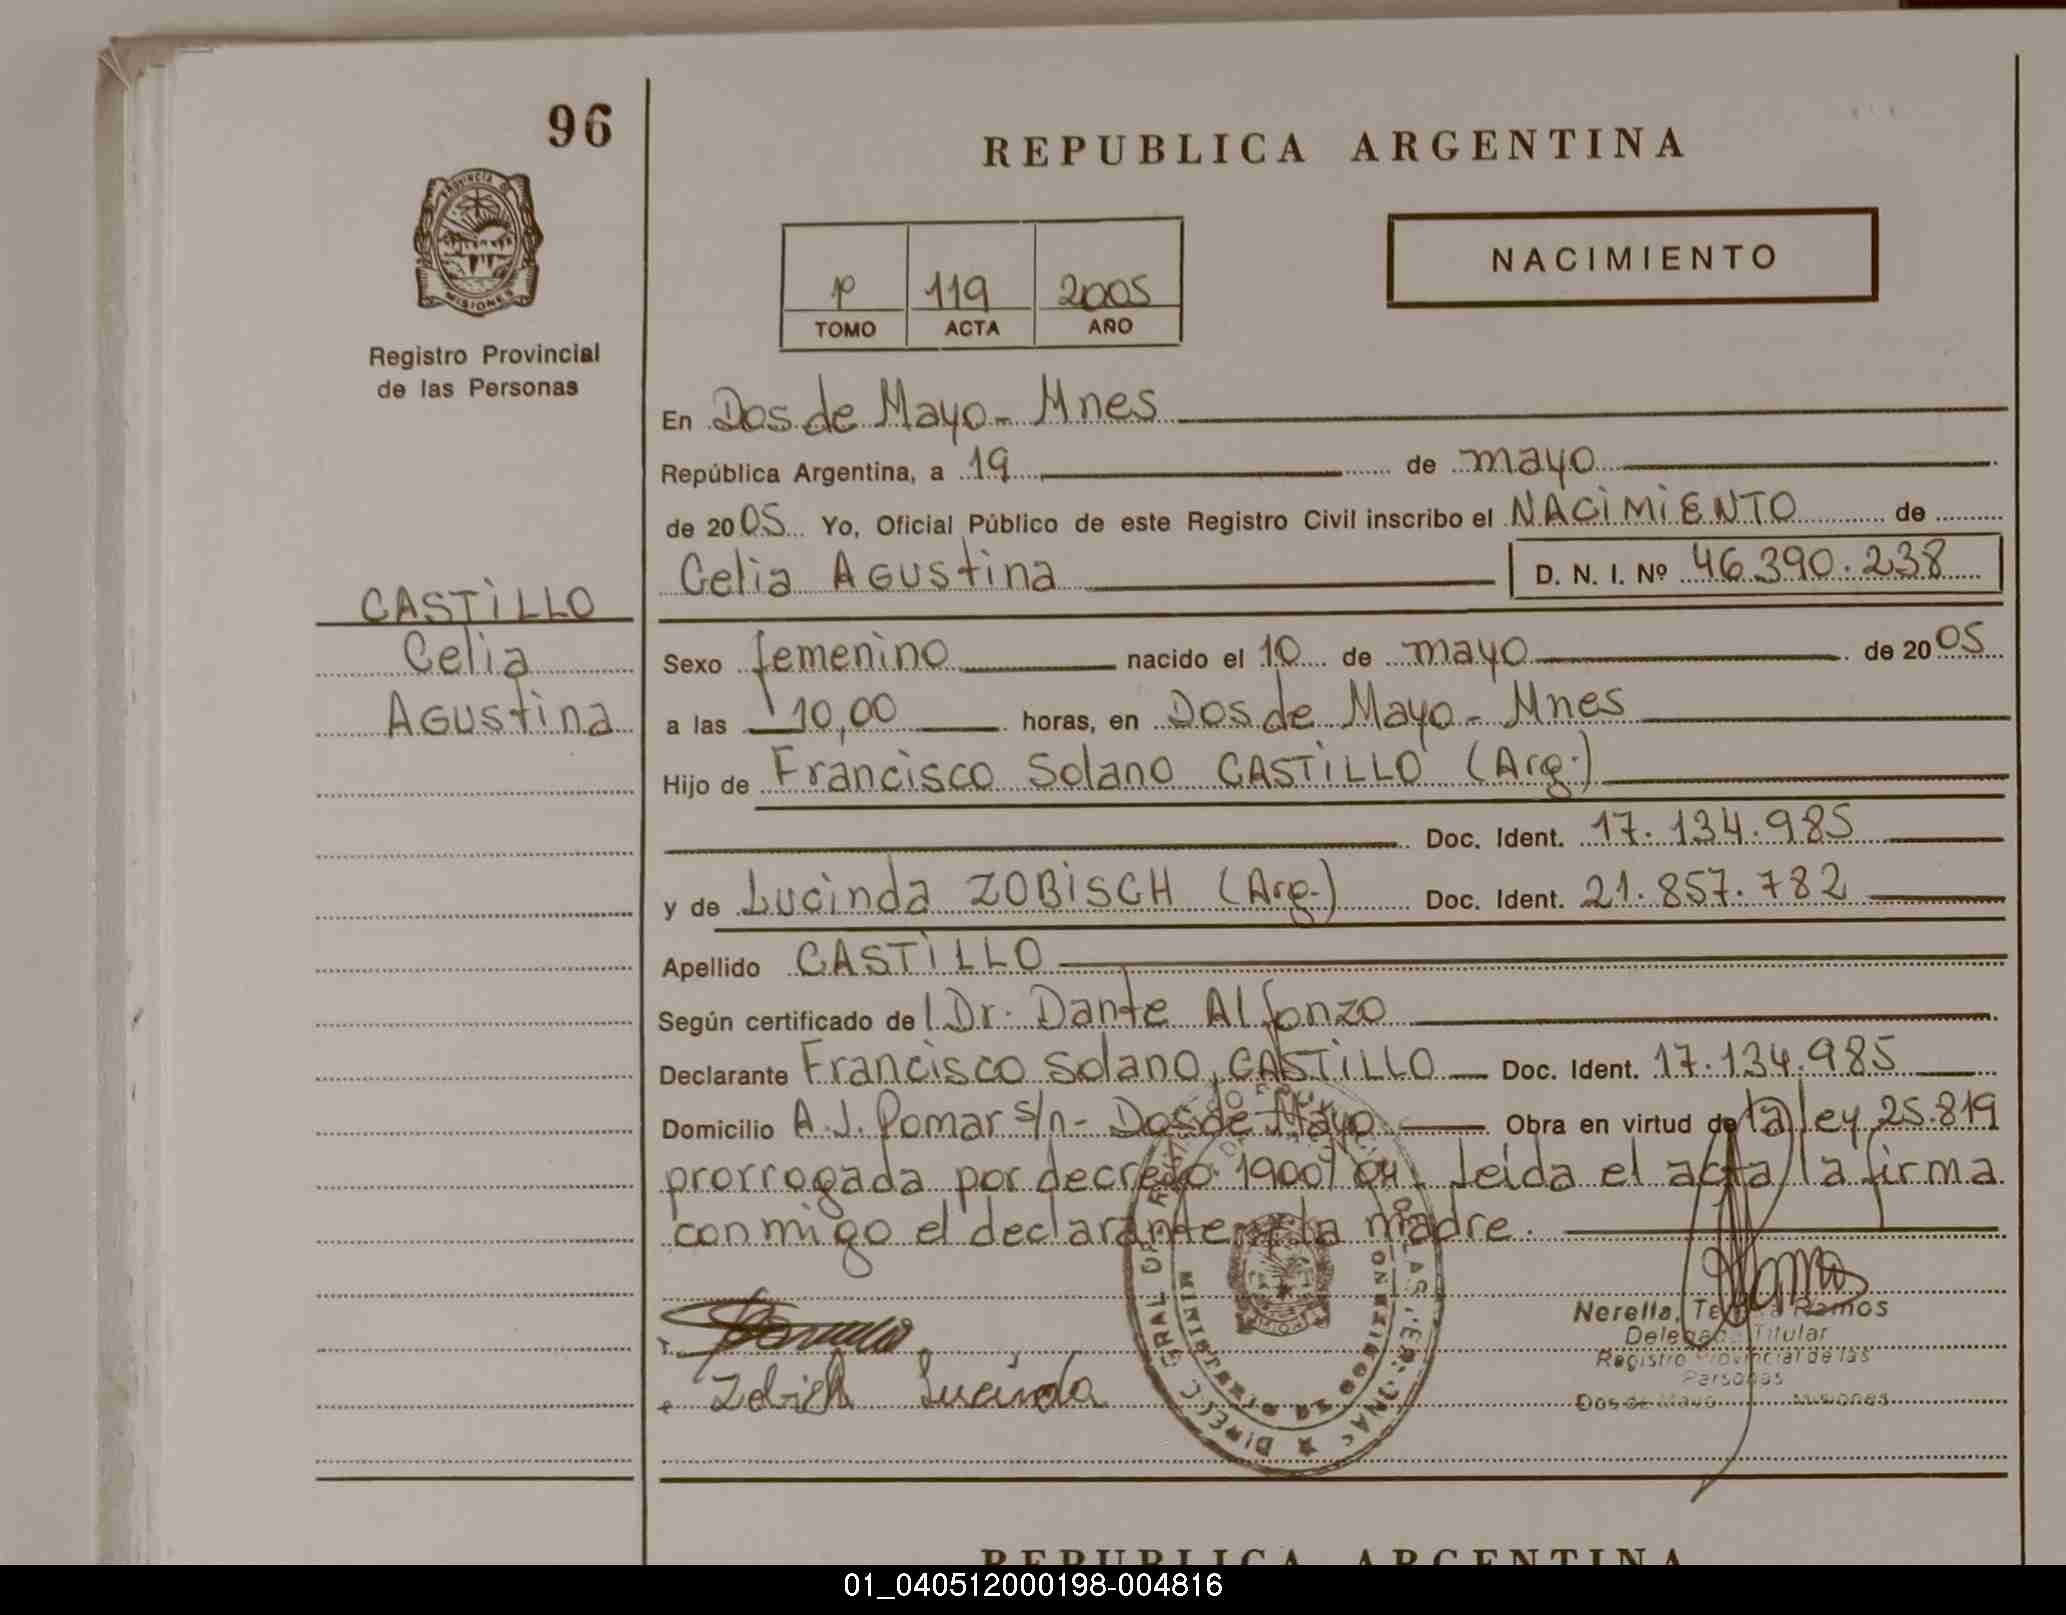 96
REPUBLICA ARGENTINA
PROVINCIA DE
MISIONES
Registro Provincial
de las Personas
NACIMIENTO
1º 119 2005
TOMO ACTA AÑO
En Dos de Mayo - Mnes
República Argentina, a 19 de mayo
de 2005 Yo, Oficial Público de este Registro Civil inscribo el NACIMIENTO de
Celia Agustina D. N. I. Nº 46.390.238
CASTILLO
Celia
Agustina
Sexo femenino nacido el 10 de mayo de 2005
a las 10,00 horas, en Dos de Mayo - Mnes
Hijo de Francisco Solano CASTILLO (Arg.)
Doc. Ident. 17.134.985
y de Lucinda ZOBISCH (Arg.) Doc. Ident. 21.857.782
Apellido CASTILLO
Según certificado del Dr. Dante Alfonzo
Declarante Francisco Solano CASTILLO Doc. Ident. 17.134.985
Domicilio A.J. Pomar s/n - Dos de Mayo Obra en virtud de la ley 25.819
prorrogada por decreto 1900/04. Leida el acta la firma
conmigo el declarante y la madre.
Nerella, Ramos
Titular
Registro Provincial de las
Personas
Dos de Mayo Misiones
Zobisch Lucinda
REPUBLICA ARGENTINA
01_040512000198-004816